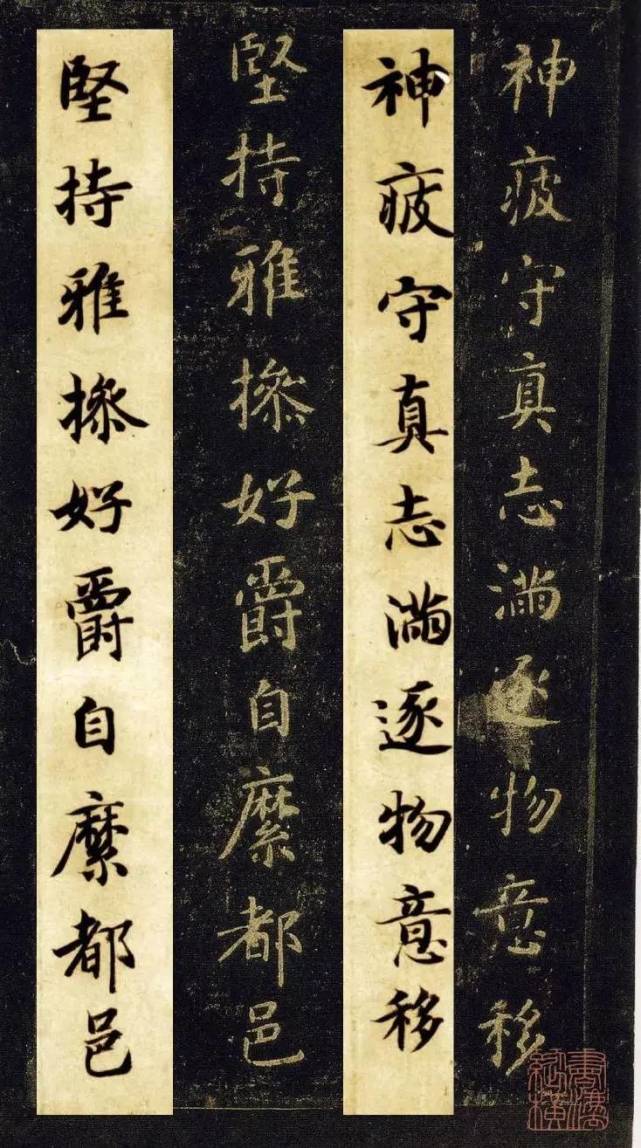 神疲守真志滿逐物意移
神疲守真志滿逐物意移
堅持雅操好爵自縻都邑
堅持雅操好爵自縻都邑